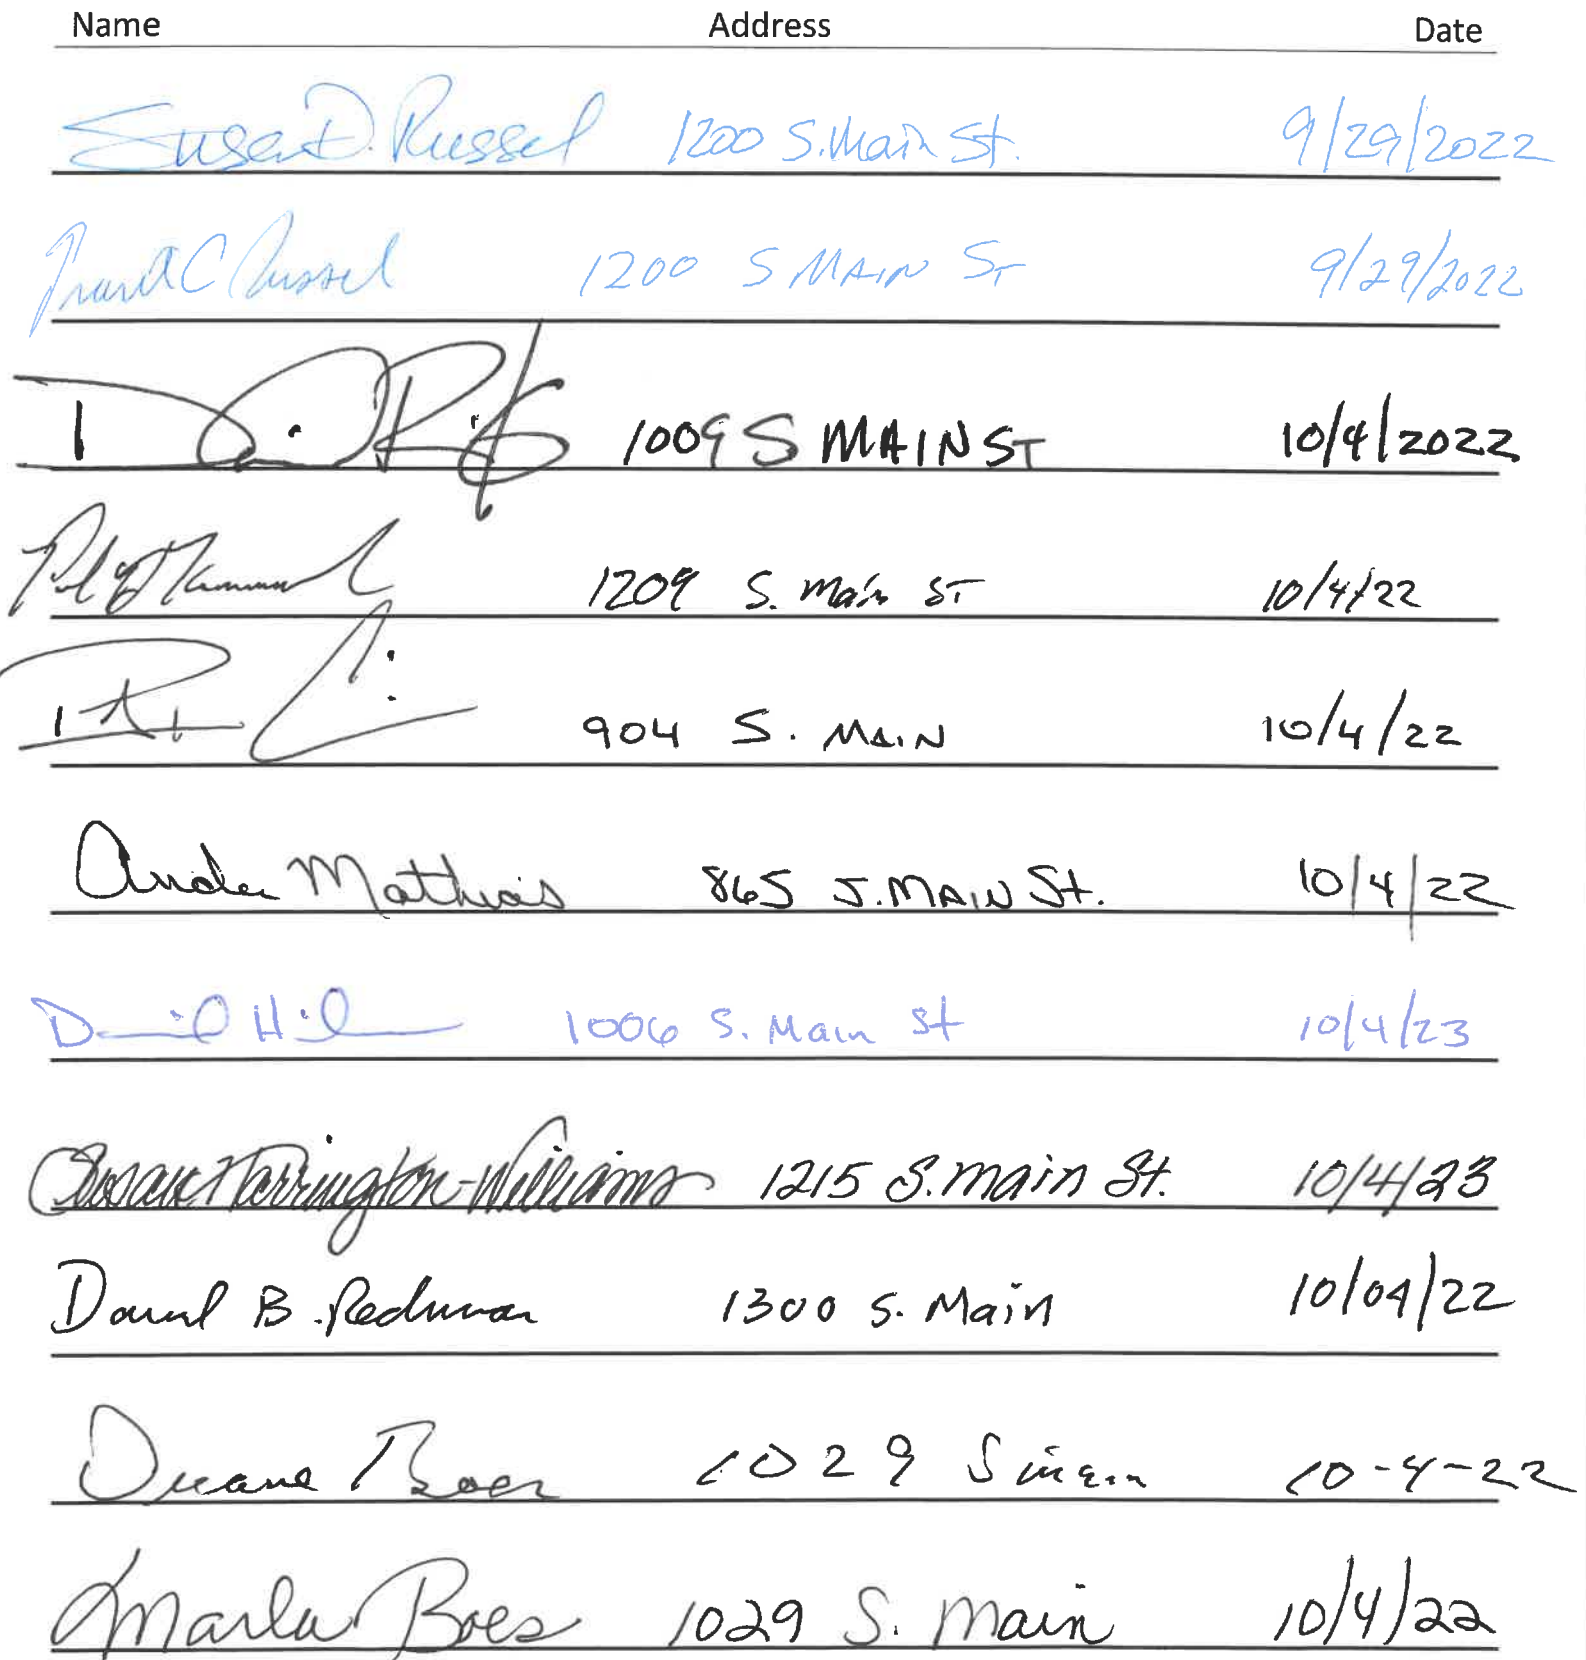 Name Address Date
Susan D. Russel 1200 S. Main St. 9/29/2022
Frank C Russel 1200 S MAIN ST 9/29/2022
1009 S MAIN ST 10/4/2022
1209 S. Main ST 10/4/22
904 S. MAIN 10/4/22
Mathias 865 S. MAIN St. 10/4/22
1006 S. Main St 10/4/23
Susan Harrington-Williams 1215 S. Main St. 10/4/23
B. Redman 1300 S. Main 10/04/22
Duane Boes 1029 S main 10-4-22
Marla Boes 1029 S. Main 10/4/22